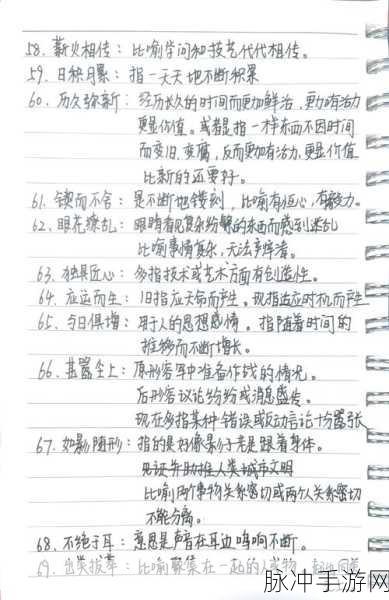 58. 薪火相传：比喻学问和技艺代代相传。
59. 日积月累：指一天天地不断积累
60. 历久弥新：经历长久的时间而更加鲜活，更加有活力
更显价值。或者是指一样东西不因时间
而变旧、变腐，反而更加有活力，更显价值
比新的还要好。
61. 锲而不舍：是不断地镂刻，比喻有恒心，有毅力。
62. 眼花缭乱：眼睛看见复杂纷繁的东西而感到迷乱
比喻事情复杂，无法弄清。
63. 独具匠心：多指技术或艺术方面有创造性。
64. 应运而生：旧指应天命而产生。现指适应时机而产生
65. 与日俱增：用于人的思想感情。指随着时间的
推移而不断增长。
66. 甚嚣尘上：原形容军中准备作战的情况。
后形容议论纷纷或消息盛传。
现在多指某种错误或反动言论十分嚣张
67. 如影随形：指的是好像影子老是跟着身体。
见证并助推人类城市文明
比喻两个事物关系密切或两个人关系密切
不能分离。
68. 不绝于耳：意思是声音在耳边鸣响不断。
69. 出类拔萃：比喻聚集在一起的人或物，超出同类
脉冲手游网